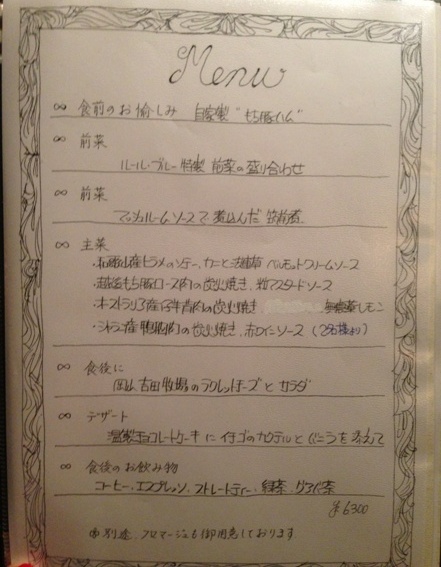 Menu
∞ 食前のお愉しみ 自家製"もち豚ハム"
∞ 前菜
ルール・ブルー特製 前菜の盛り合わせ
∞ 前菜
マッシュルームソースで煮込んだ 筑前煮
∞ 主菜
産ヒラメのソテー、カニと法蓮草 ベルモットクリームソース
・越後もち豚ロース肉の炭火焼き、粒マスタードソース
・オーストラリア産仔牛肉の炭火焼き レモン
・シャラン産鴨胸肉の炭火焼き、赤ワインソース (2名様より)
∞ 食後に
岡山 吉田牧場のラクレットチーズと サラダ
∞ デザート
温製チョコレートケーキに イチゴのカクテルと バニラを添えて
∞ 食後のお飲み物
コーヒー、エスプレッソ、ストレートティー、緑茶、
¥6300
別途、フロマージュも御用意しております